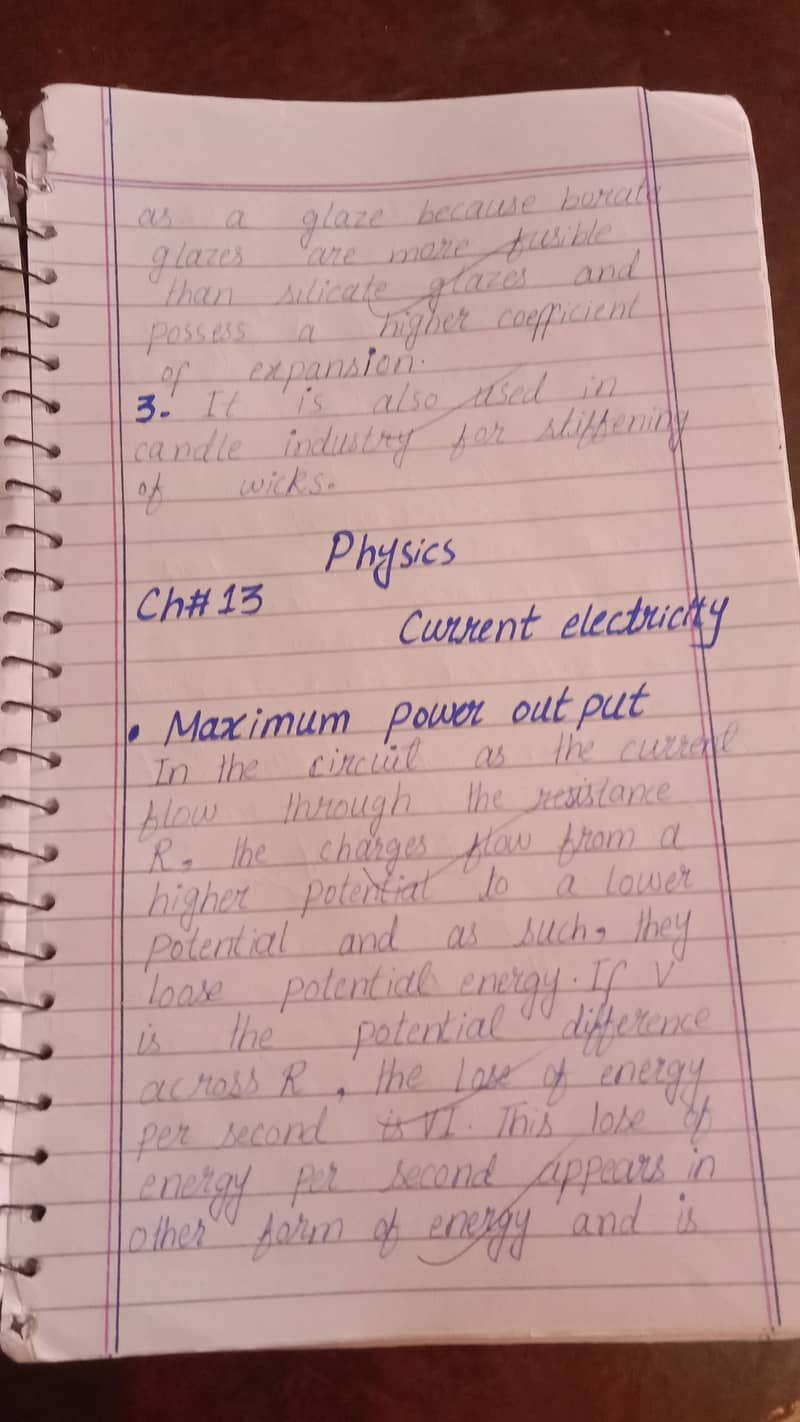 as a glaze because borate
glazes are more fusible
than silicate glazes and
possess a higher coefficient
of expansion.
3. It is also used in
candle industry for stiffening
of wicks.
Physics
Ch#13
Current electricity
• Maximum power out put
In the circuit as the current
flow through the resistance
R, the charges flow from a
higher potential to a lower
potential and as such, they
loose potential energy. If V
is the potential difference
across R, the lose of energy
per second is VI. This lose of
energy per second appears in
other form of energy and is